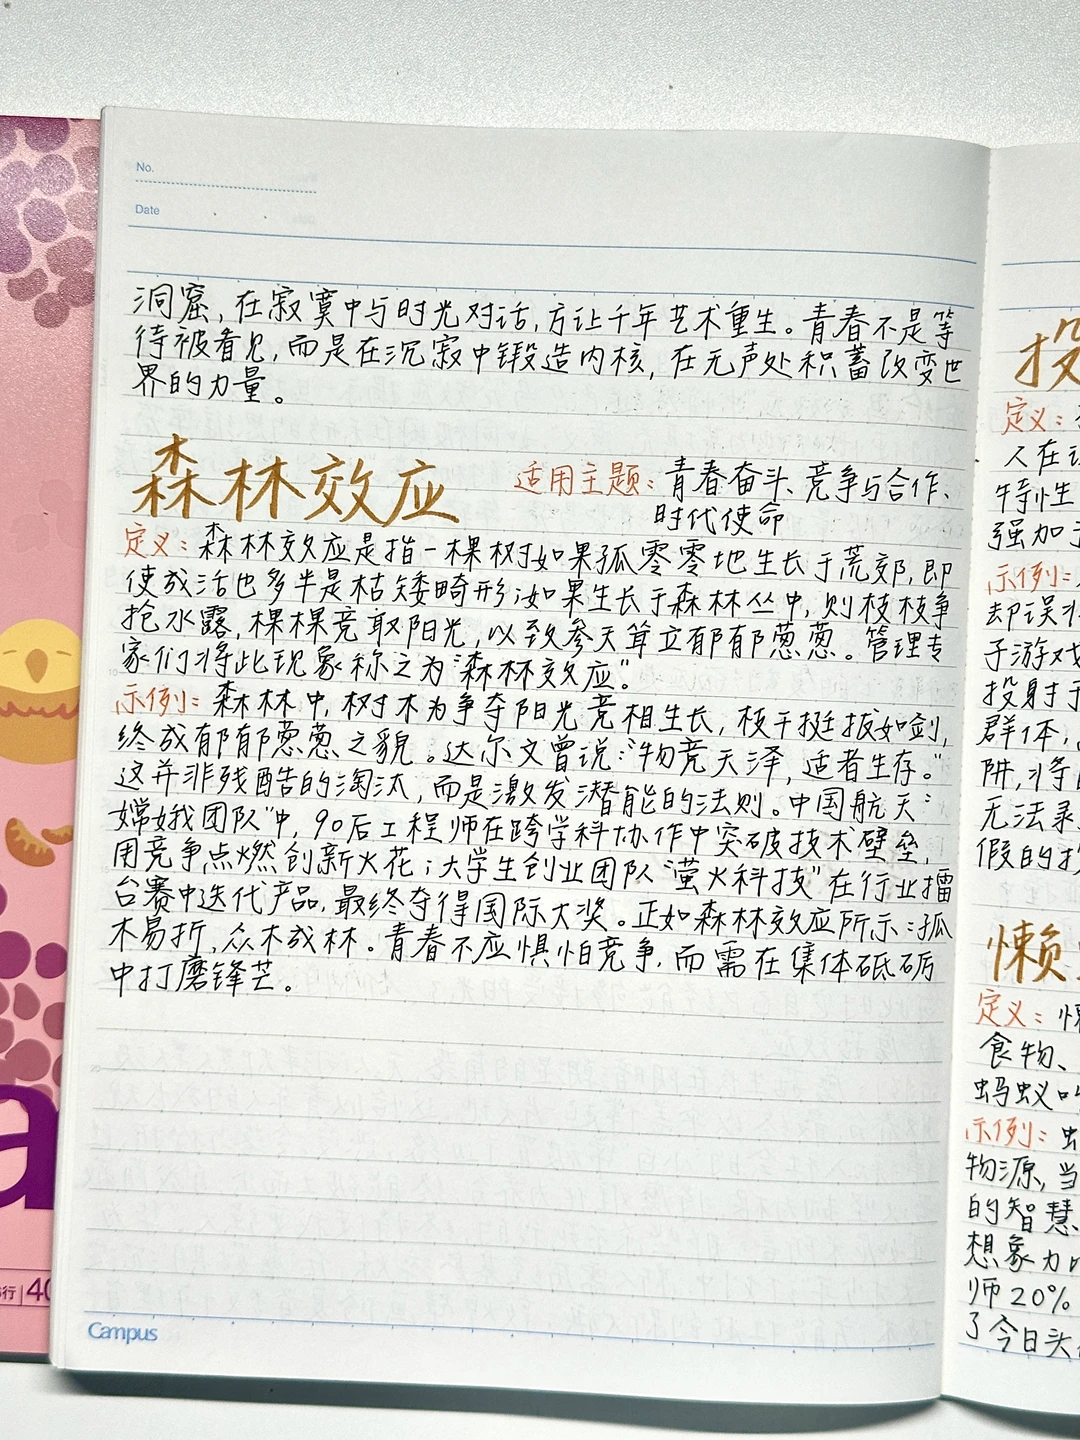 No.
Date
洞窟,在寂寞中与时光对话,方让千年艺术重生。青春不是等
待被看见,而是在沉寂中锻造内核,在无声处积蓄改变世
界的力量。
森林效应 适用主题:青春奋斗、竞争与合作、
时代使命
定义:森林效应是指一棵树如果孤零零地生长于荒郊,即
使成活也多半是枯矮畸形;如果生长于森林丛中,则枝枝争
抢水露,棵棵竞取阳光,以致参天耸立郁郁葱葱。管理专
家们将此现象称之为“森林效应”。
示例:森林中,树木为争夺阳光竞相生长,枝干挺拔如剑,
终成郁郁葱葱之貌。达尔文曾说:“物竞天泽,适者生存。”
这并非残酷的淘汰,而是激发潜能的法则。中国航天“
嫦娥团队”中,90后工程师在跨学科协作中突破技术壁垒,
用竞争点燃创新火花;大学生创业团队“萤火科技”在行业擂
台赛中迭代产品,最终夺得国际大奖。正如森林效应所示:孤
木易折,众木成林。青春不应惧怕竞争,而需在集体砥砺
中打磨锋芒。
Campus
投
定义:
人在
特性
强加于
示例:
却误
子游戏
投射于
群体,
阱,将
无法录
假的投
懒
定义:
食物、
蚂蚁
示例:
物源,当
的智慧
想象力
师20%
了今日头
a
行 40